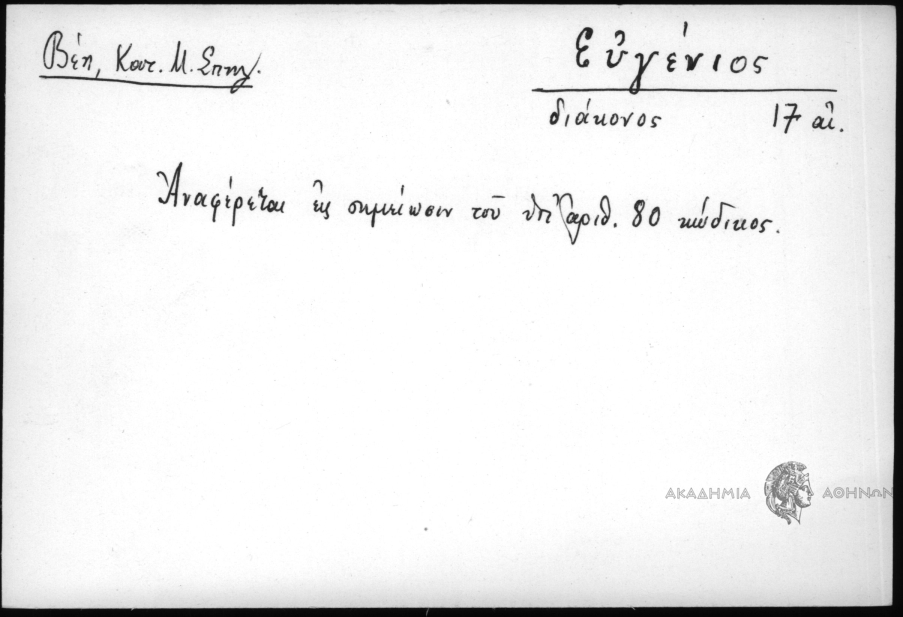 Βέη, Κατ. Μ. Σπηλ.
Εὐγένιος
διάκονος 17 αἰ.
Ἀναφέρεται εἰς σημείωσιν τοῦ ὑπ' ἀριθ. 80 κώδικος.
ΑΚΑΔΗΜΙΑ ΑΘΗΝΩΝ